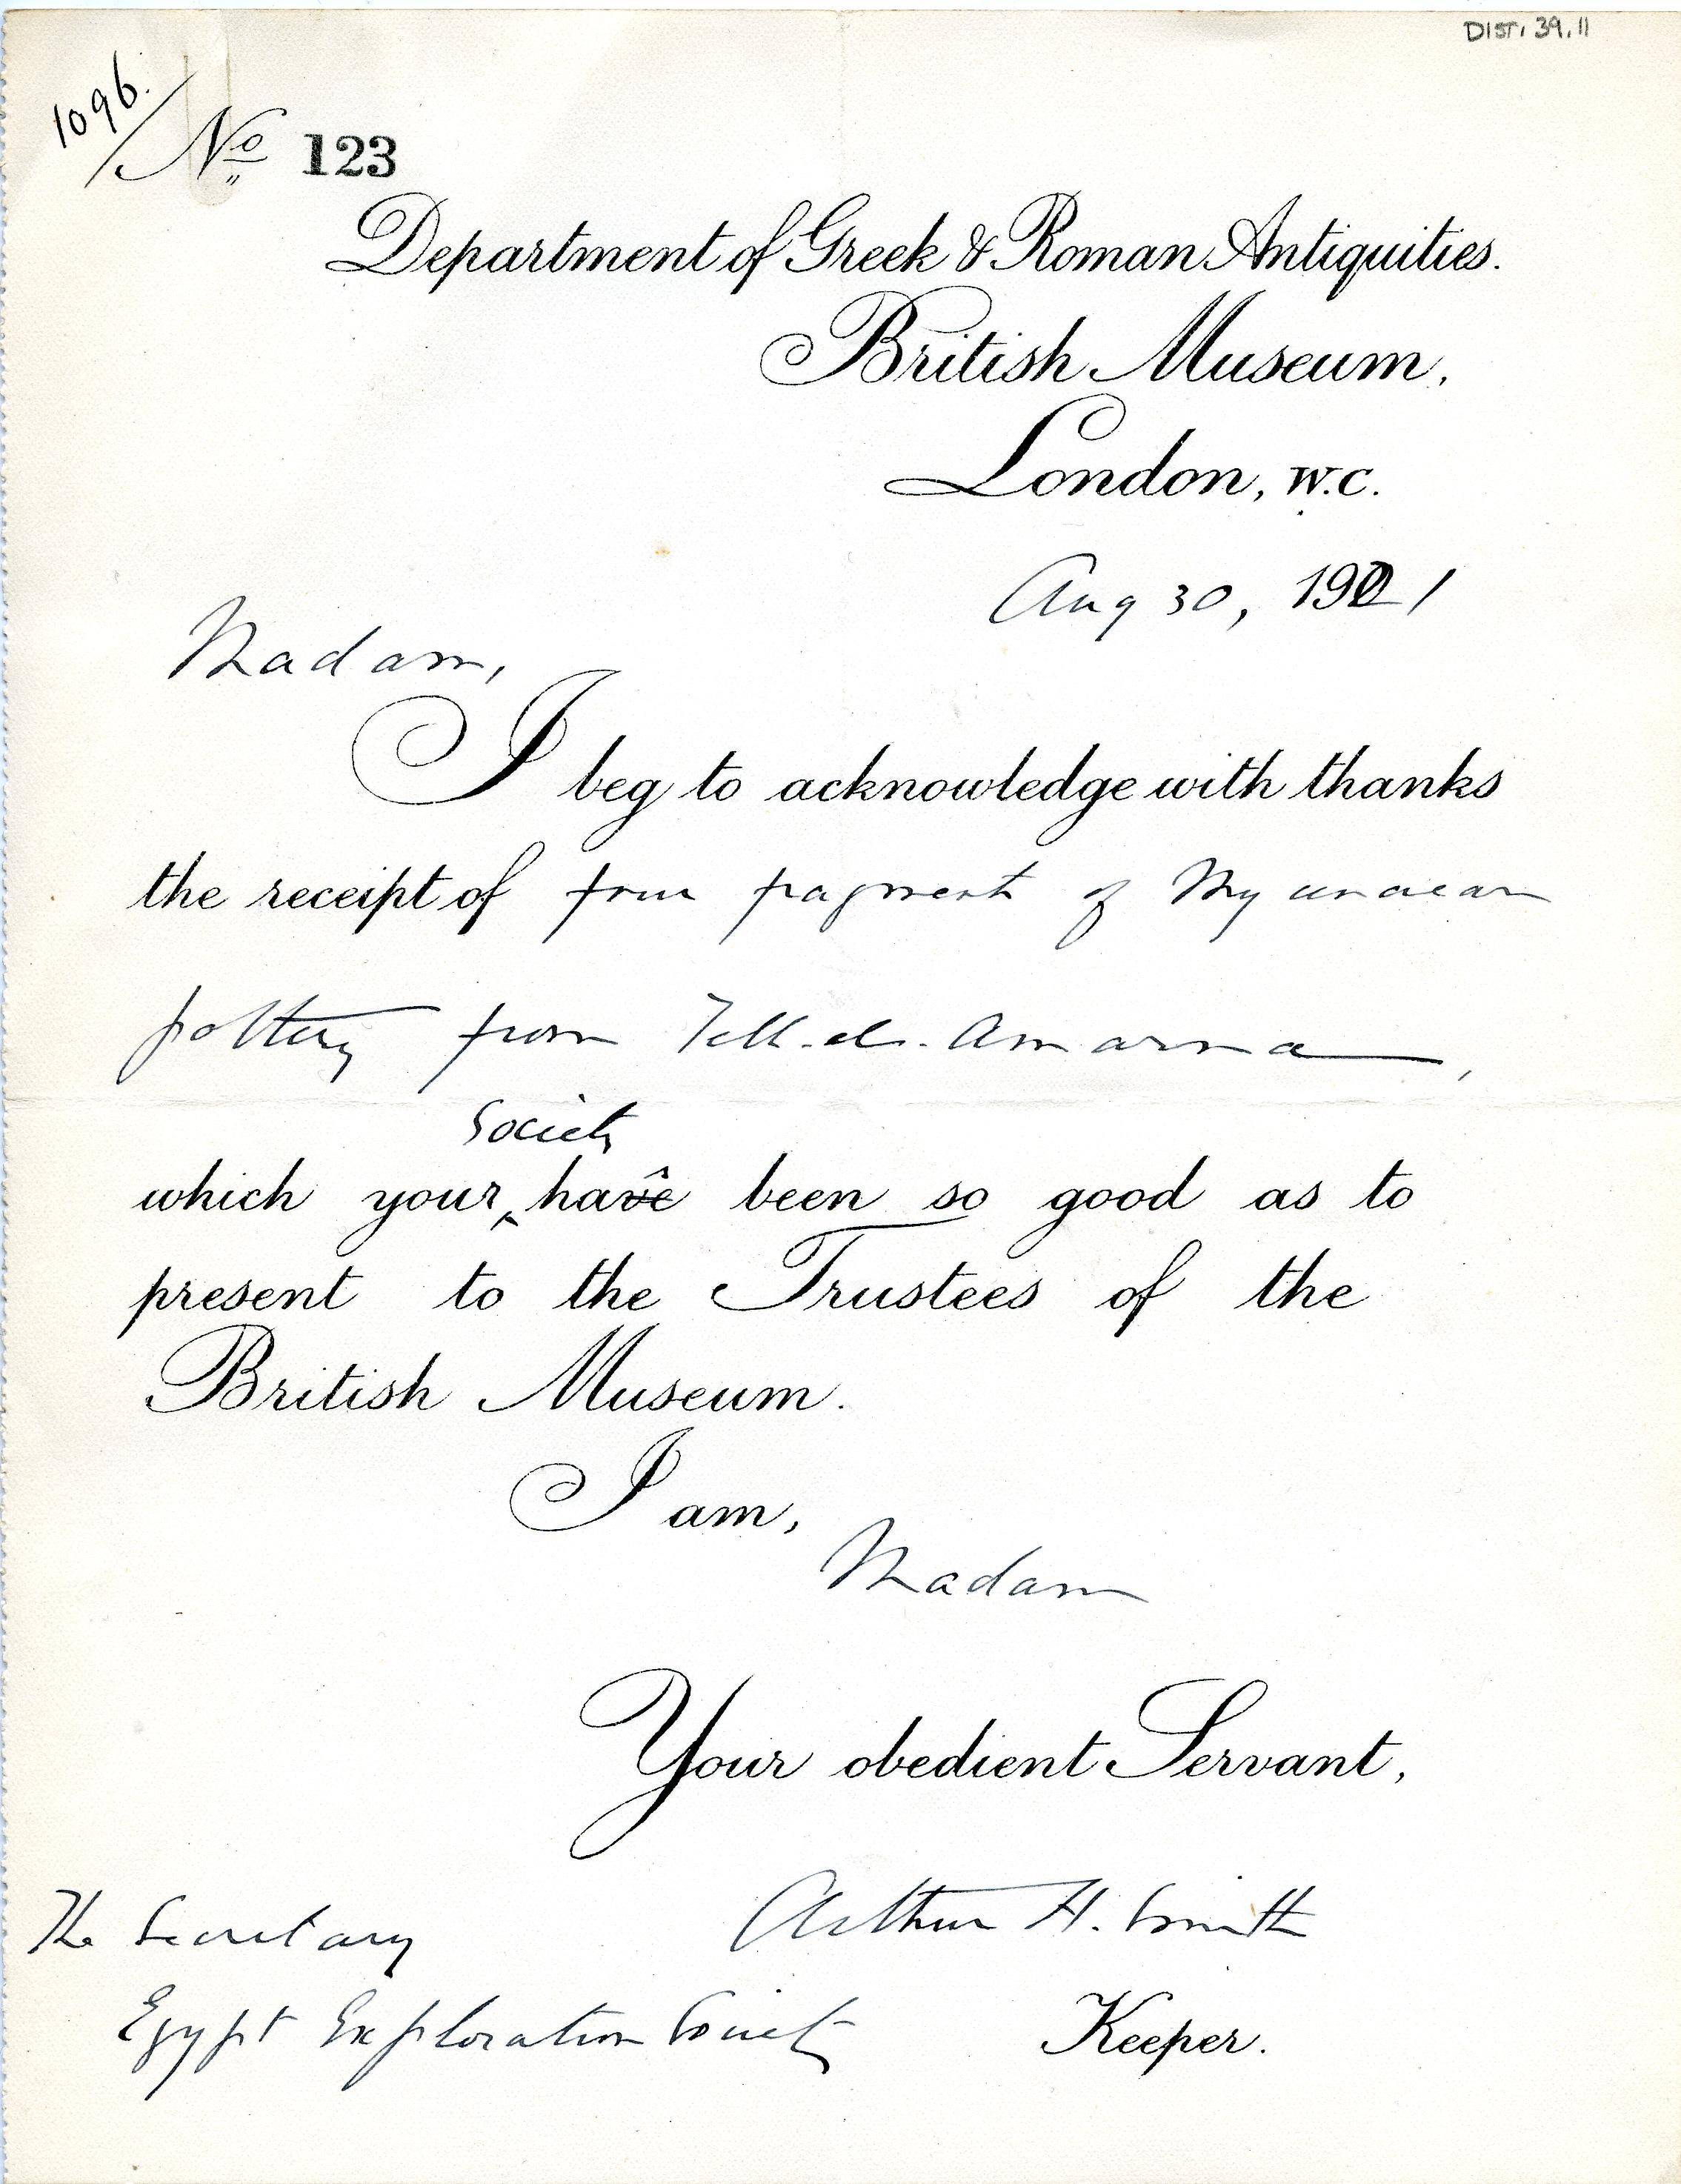 DIST. 39.11
1096.
No 123
Department of Greek & Roman Antiquities.
British Museum,
London, W.C.
Aug 30, 1921
Madam,
I beg to acknowledge with thanks
the receipt of four fragments of Mycenaean
pottery from Tell-el-Amarna,
Society
which your ‸ have been so good as to
present to the Trustees of the
British Museum.
I am,
Madam
Your obedient Servant,
Arthur H. Smith
The Secretary
Egypt Exploration Society
Keeper.